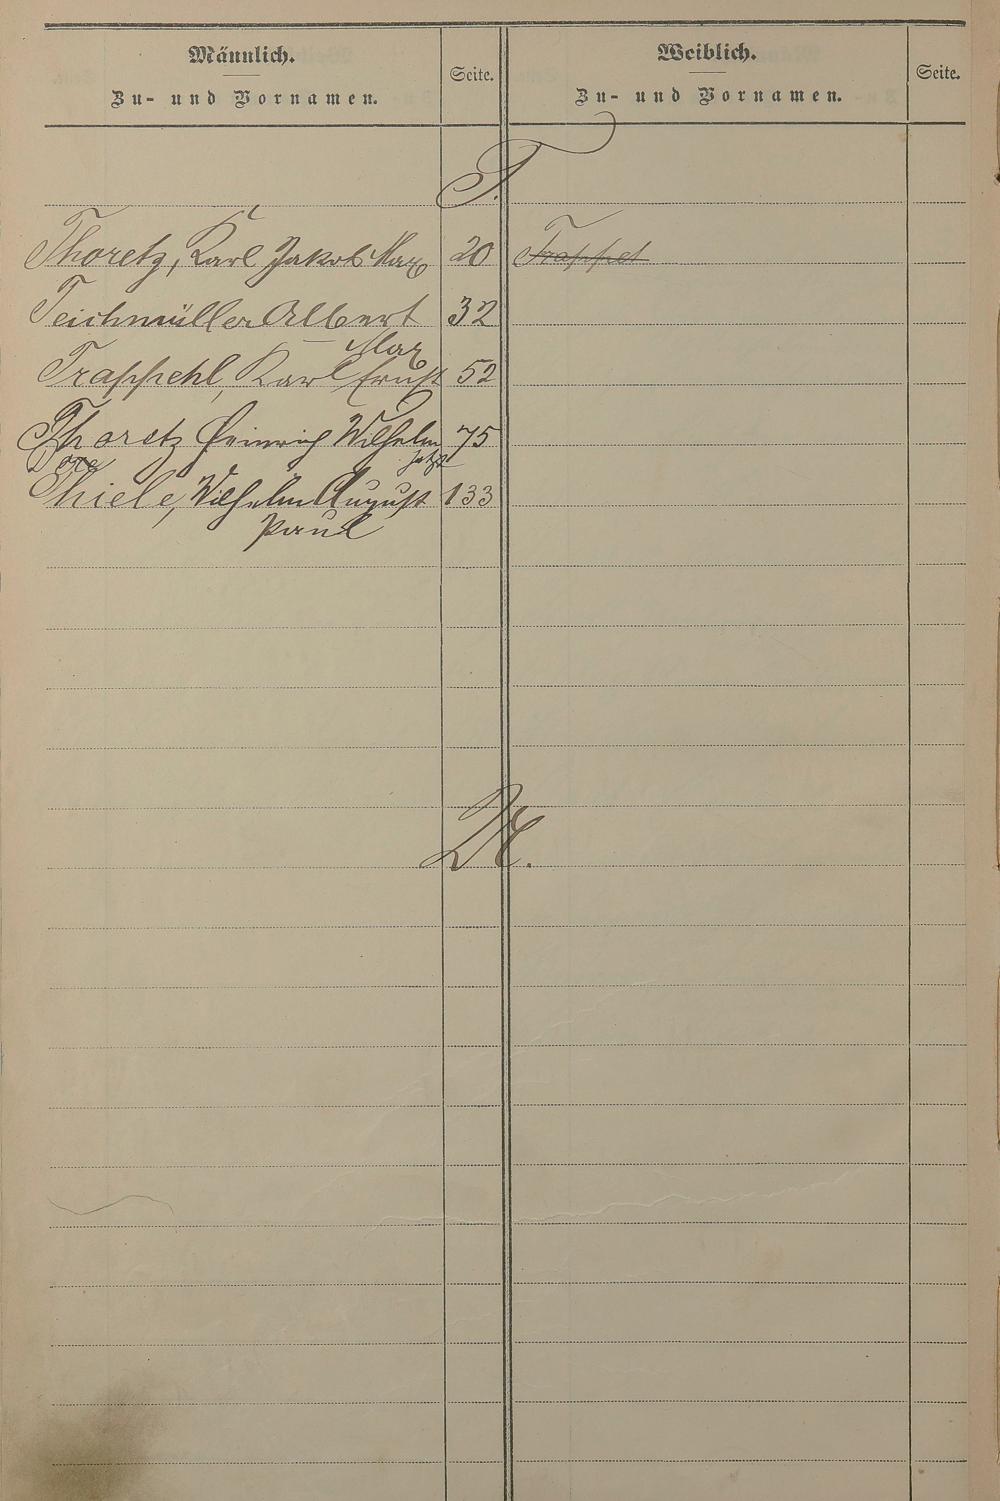 Männlich.
Zu- und Vornamen.
Seite.
Weiblich.
Zu- und Vornamen.
Seite.
T.
Thoretz, Karl Jakob Max 20
Trappet
Teichmüller Albert 32
Max
Trappehl, Karl Ernst 52
Thoretz Heinrich Wilhelm 75
Thiele, Wilhelm August 133
Paul
U.